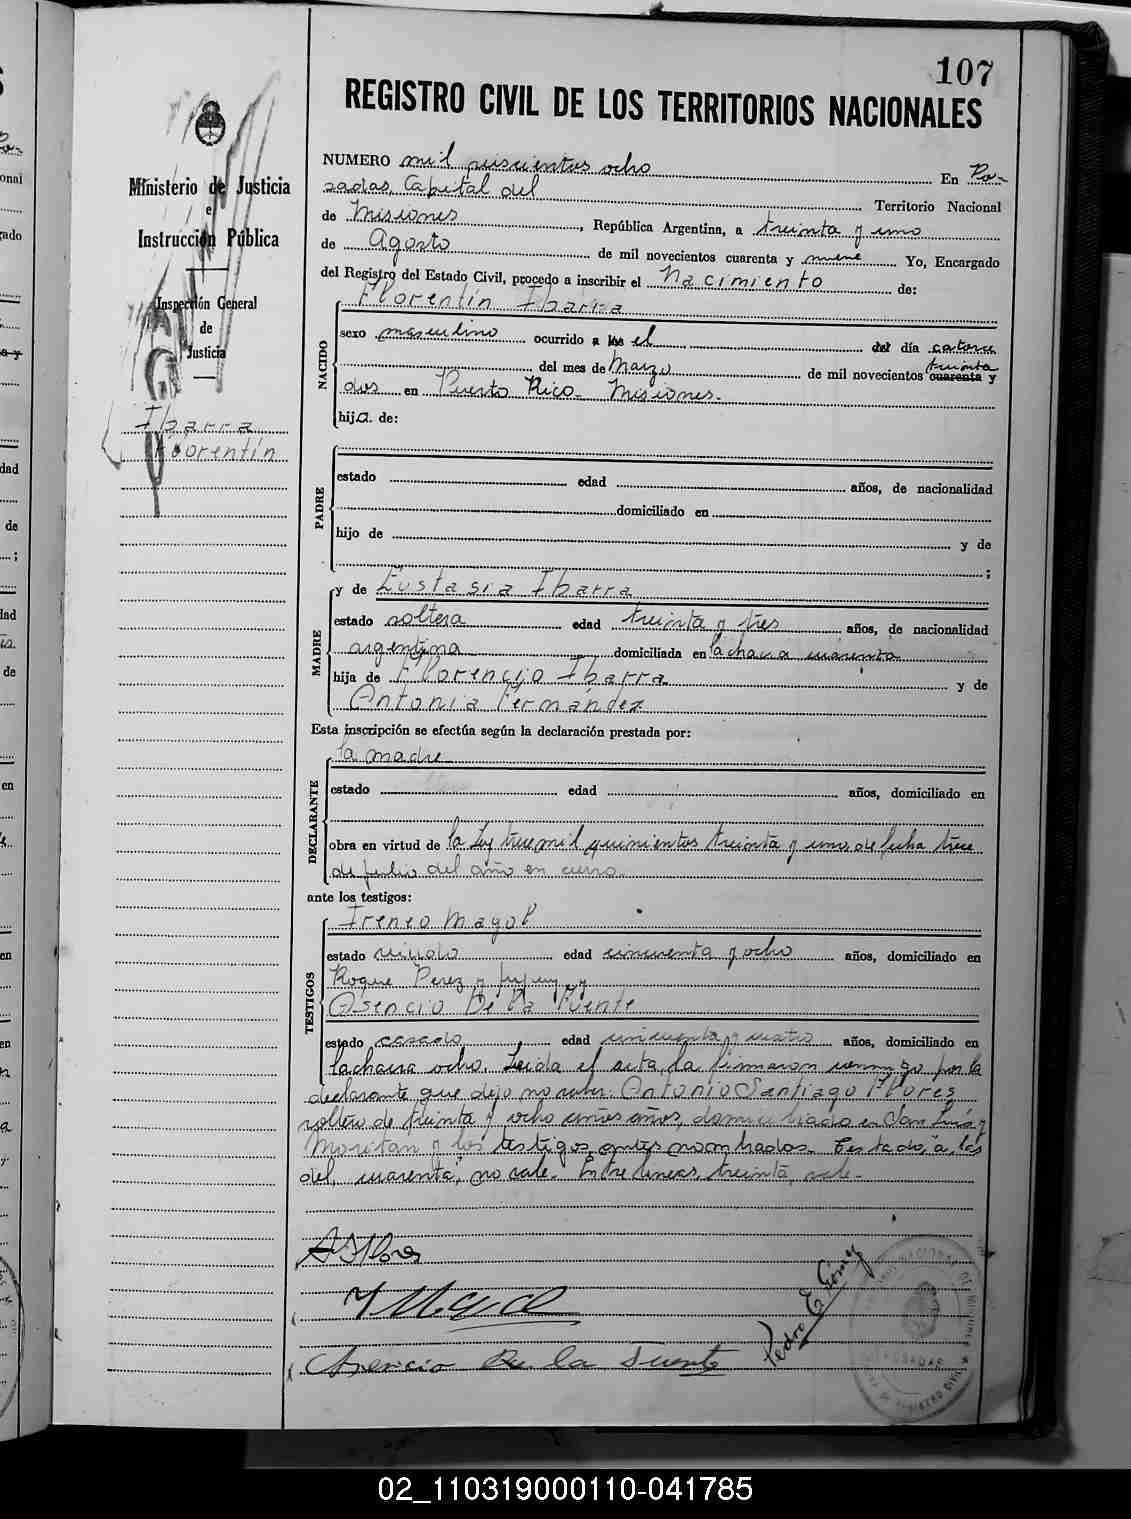 107
REGISTRO CIVIL DE LOS TERRITORIOS NACIONALES
Ministerio de Justicia
e
Instrucción Pública
Inspección General
de
Justicia
Ibarra
Florentín
NUMERO mil ocho En Po-
sadas, Capital del Territorio Nacional
de Misiones, República Argentina, a treinta y uno
de Agosto de mil novecientos cuarenta y nueve Yo, Encargado
del Registro del Estado Civil, procedo a inscribir el Nacimiento de:
Florentín Ibarra
NACIDO
sexo masculino ocurrido a las el del día catorce
del mes de Marzo de mil novecientos cuarenta treinta y
dos en Puerto Rico - Misiones.
hijo de:
PADRE
estado edad años, de nacionalidad
domiciliado en
hijo de y de
;
MADRE
y de Eustasia Ibarra
estado soltera edad treinta y tres años, de nacionalidad
argentina domiciliada en lachara cuarenta
hija de Florencio Ibarra y de
Antonia Fernández
Esta inscripción se efectúa según la declaración prestada por:
la madre
DECLARANTE
estado edad años, domiciliado en
obra en virtud de la Ley trece mil quinientos treinta y uno de fecha trece
de julio del año en curso.
ante los testigos:
TESTIGOS
Ireneo Mayol
estado viudo edad cincuenta y ocho años, domiciliado en
Roque Perez y Jujuy y
Asencio De la Fuente
estado casado edad cincuenta y cuatro años, domiciliado en
lachara ocho. Leída el acta, la firmaron conmigo por la
declarante que dijo no saber: Antonio Santiago Flores
soltero de treinta y ocho años, domiciliado en San Luis y
y los testigos antes nombrados. Testado, "a las
del, cuarenta", no vale. Entre lineas, treinta, vale.
A S Flores
I Mayol
Asencio De la Fuente
Pedro E Gómez
POSADAS
REGISTRO CIVIL
02_110319000110-041785